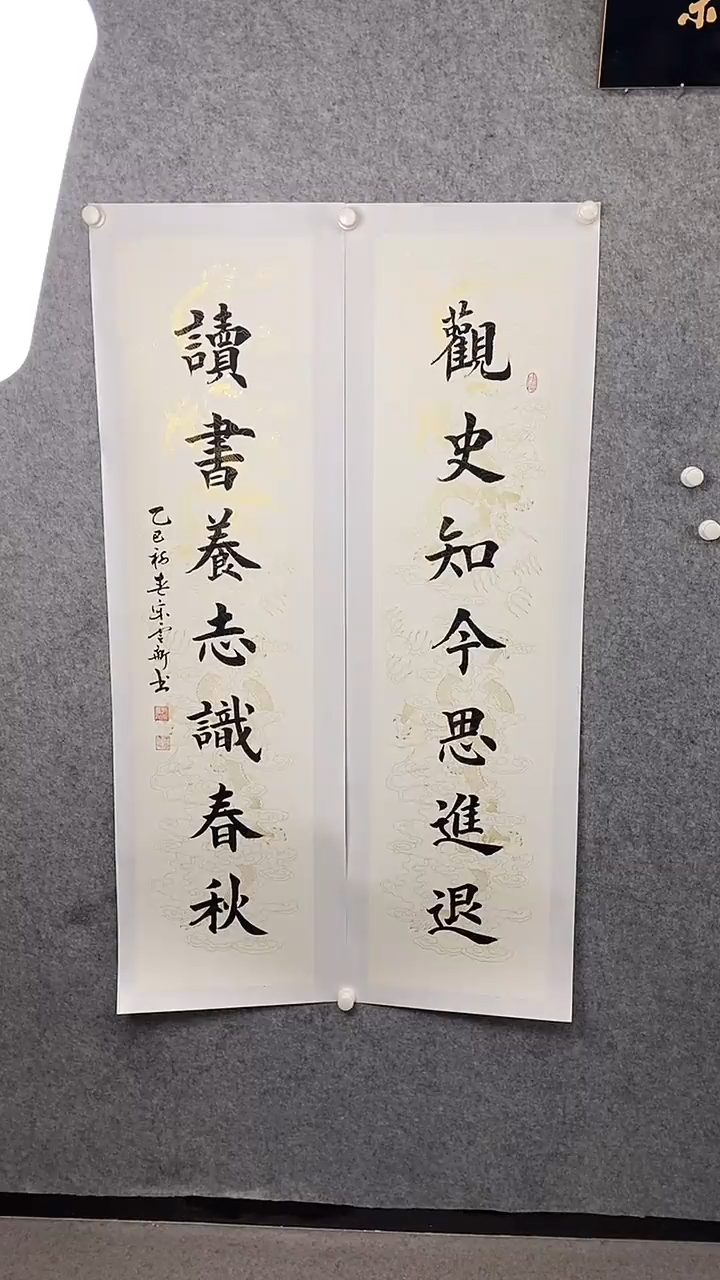 觀史知今思進退
讀書養志識春秋
乙巳初春宋雲新书